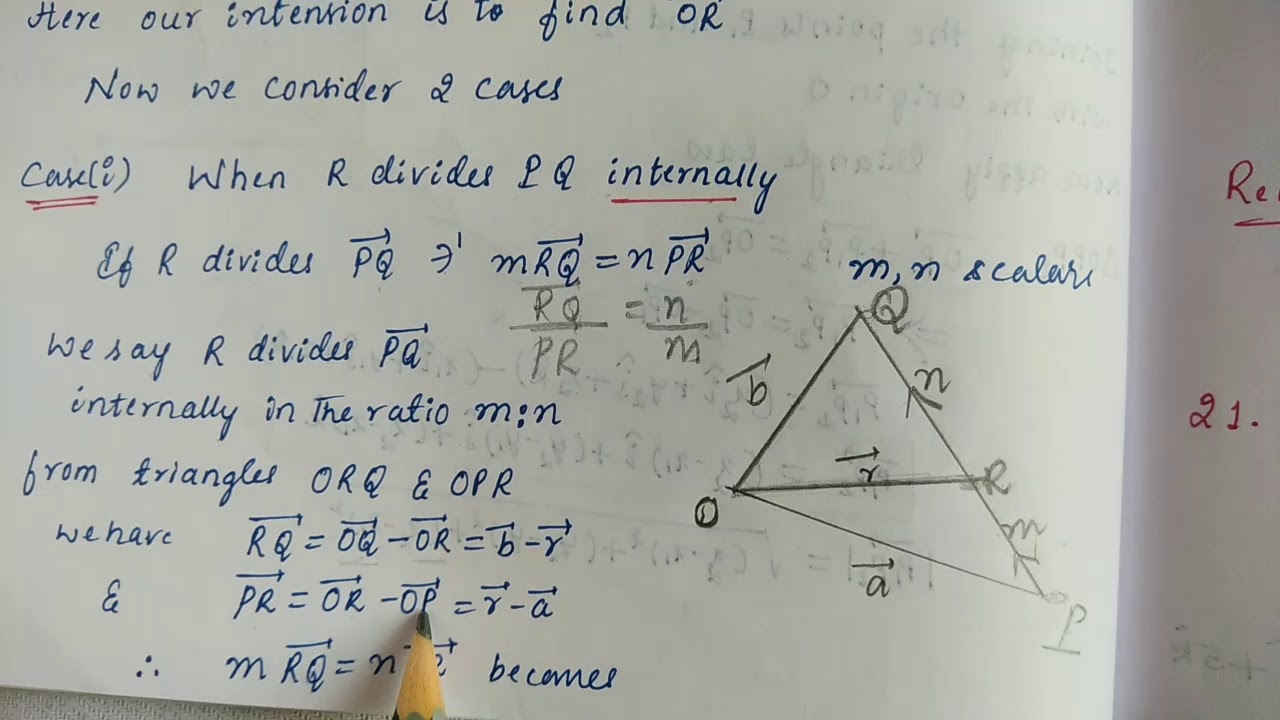 Here our intension is to find OR
Now we consider 2 cases
Case(i) When R divides PQ internally
If R divides PQ⃗ ∋' mRQ⃗ = nPR⃗ m, n scalars
RQ/PR = n/m
We say R divides PQ⃗
internally in The ratio m:n
from triangles ORQ & OPR
we have RQ⃗ = OQ⃗ - OR⃗ = b⃗ - r⃗
& PR⃗ = OR⃗ - OP⃗ = r⃗ - a⃗
∴ m RQ⃗ = n becomes
Q
b⃗
n
r⃗
R
O
m
a⃗
P
21.